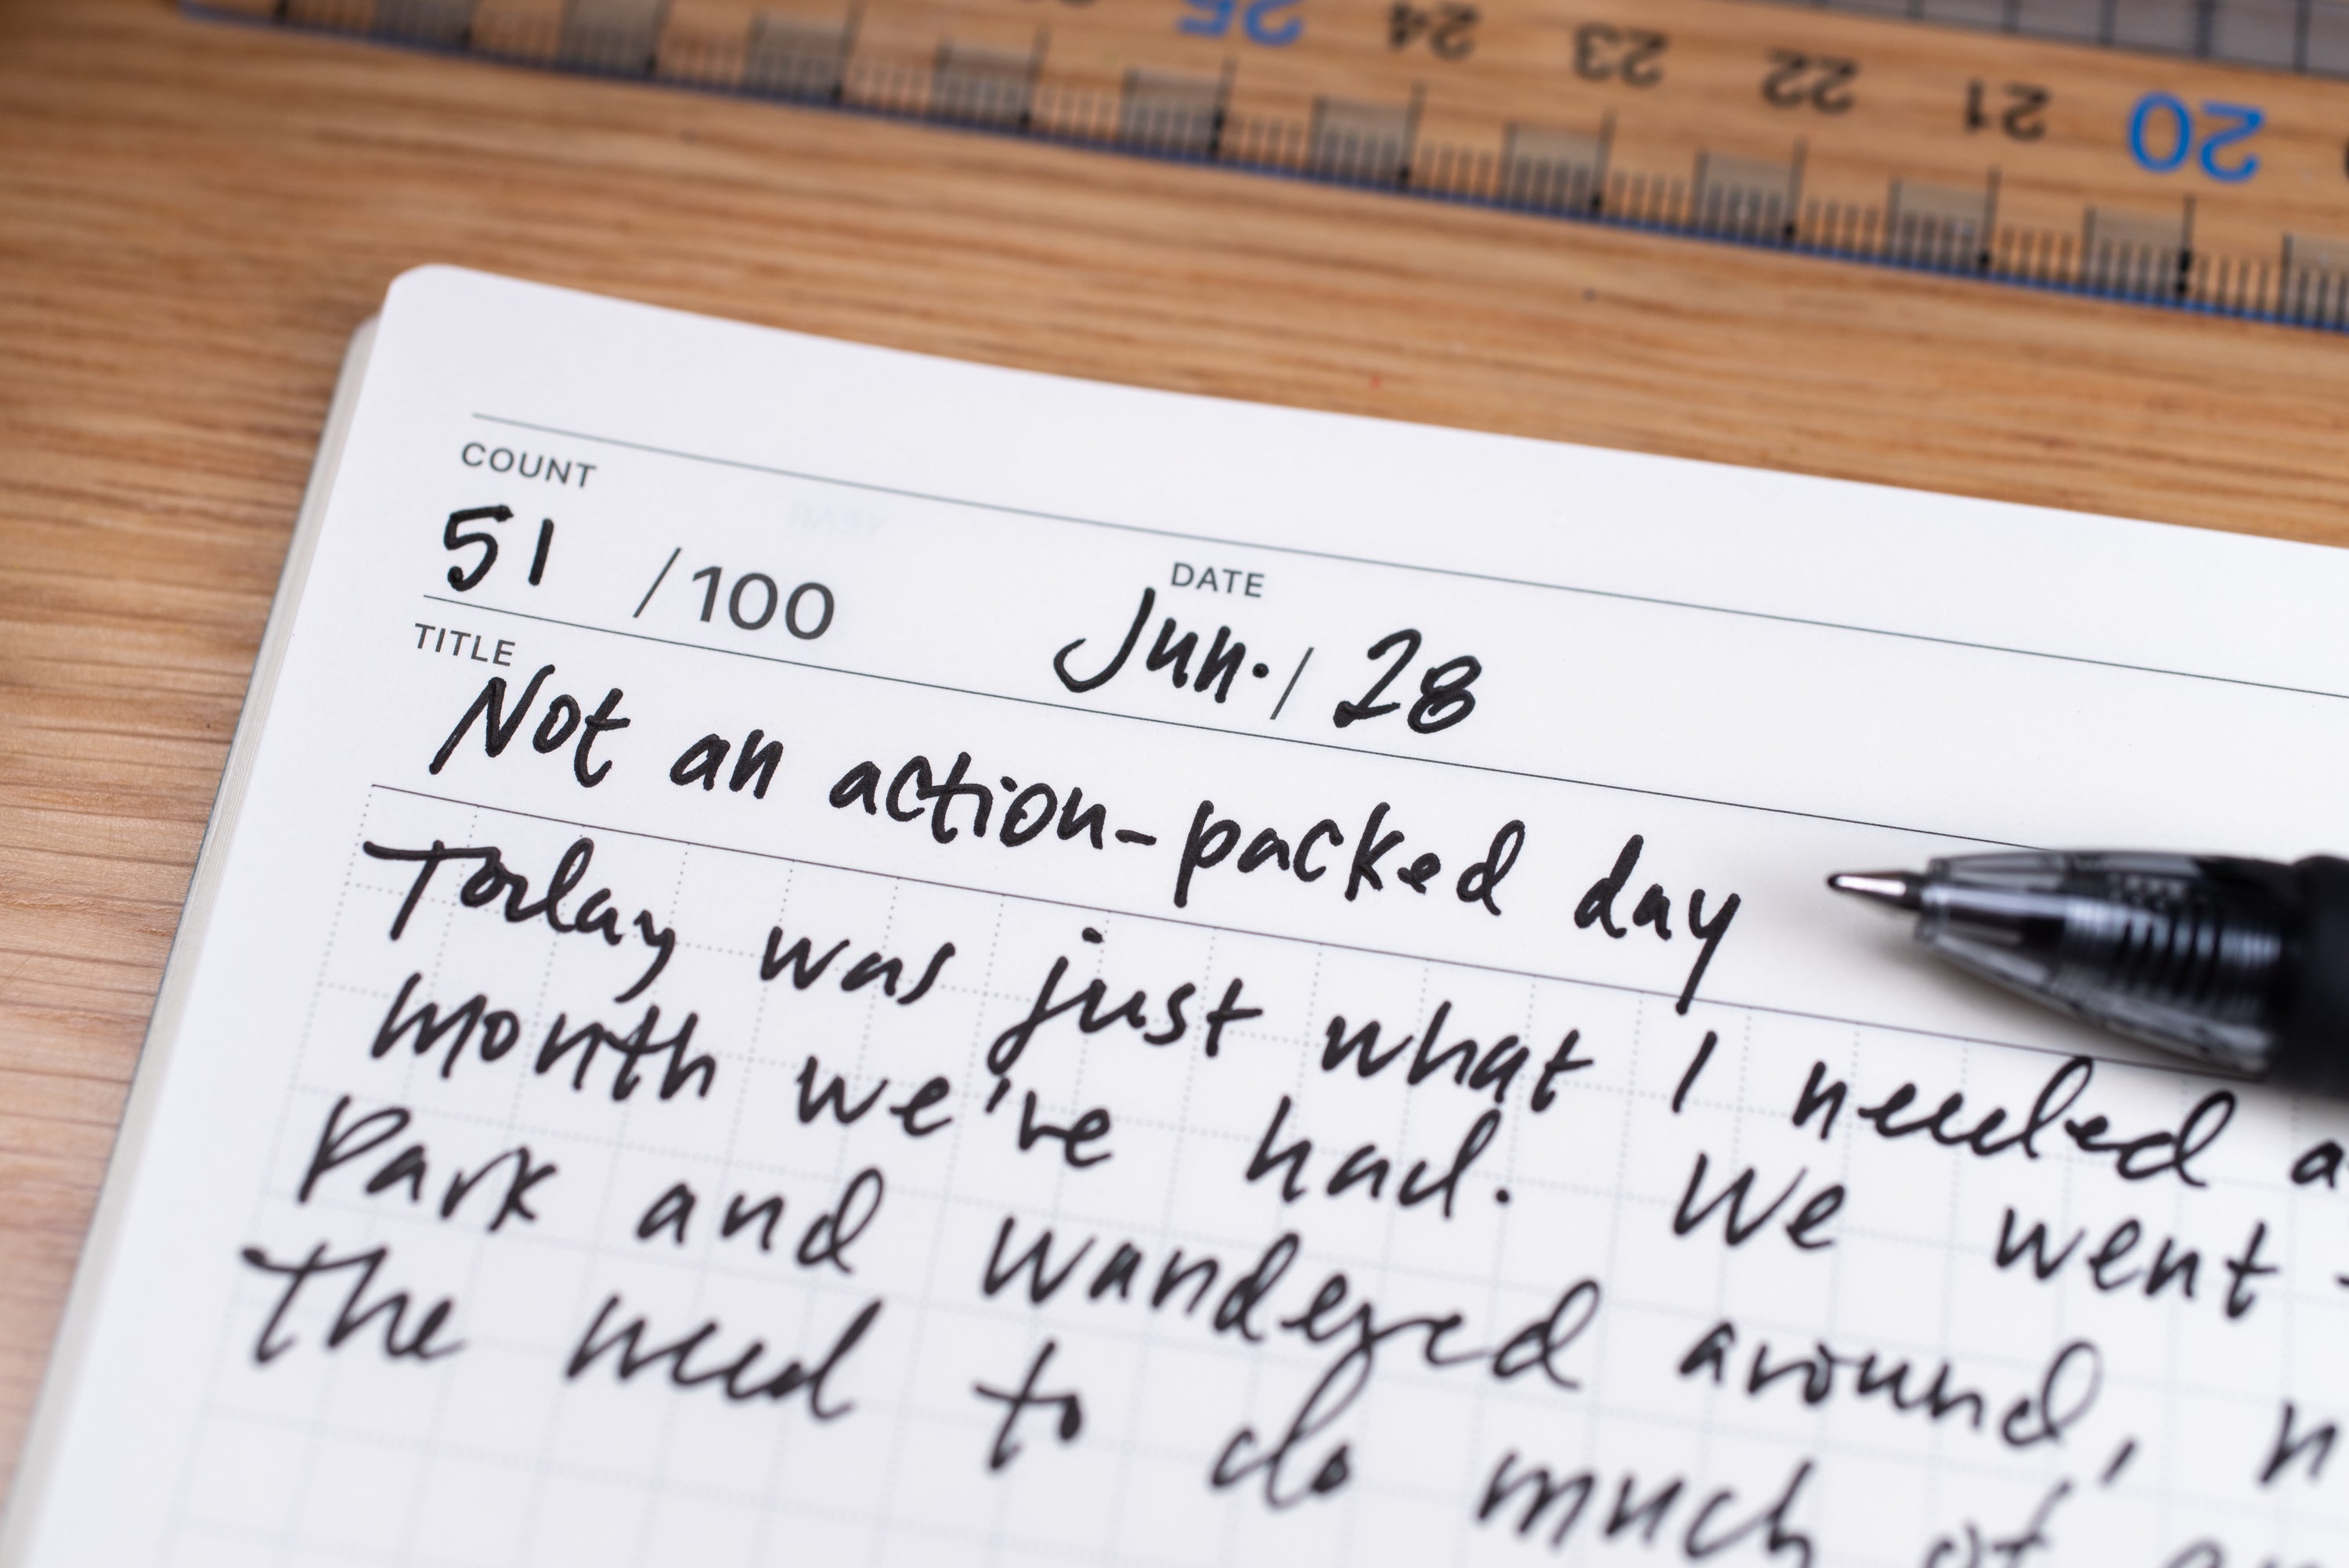 25 24 23 22 21 20
COUNT
51 /100
DATE
Jun. / 28
TITLE
Not an action-packed day
Today was just what I needed
month we've had. We went
Park and wandered around,
the need to do much of